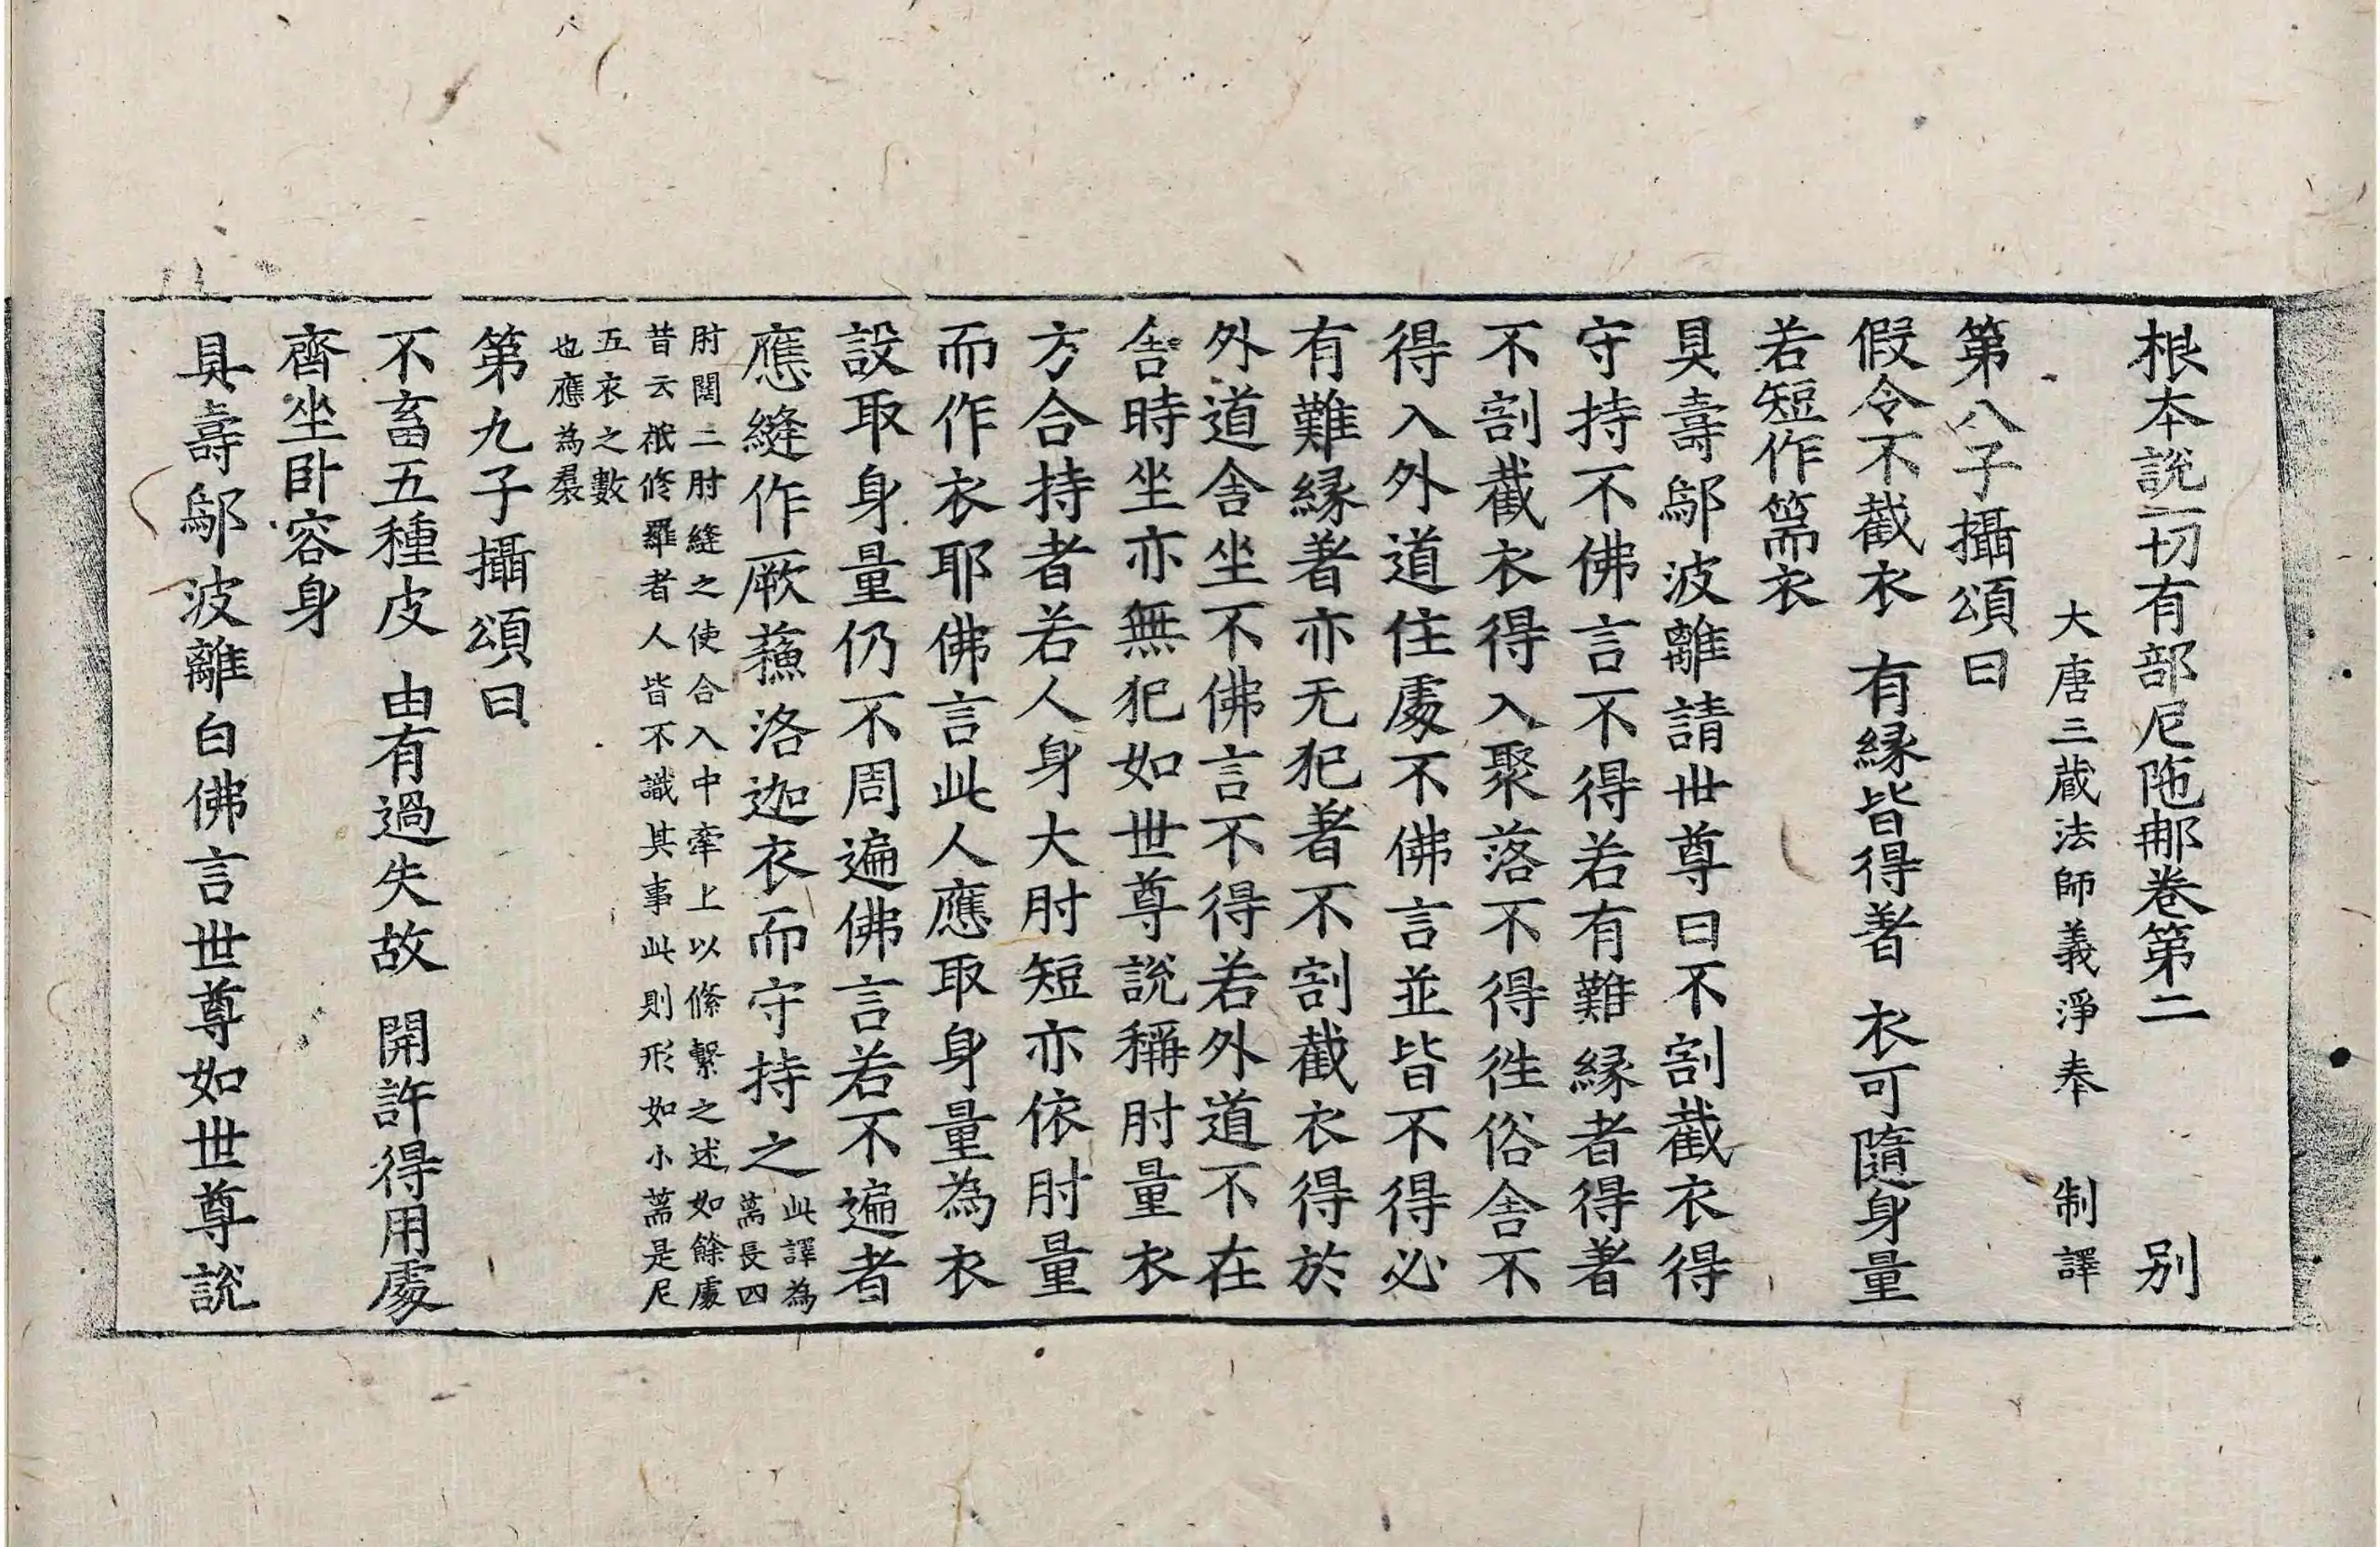 根本說一切有部尼陁那卷第二 别
大唐三蔵法師義淨奉 制譯
第八子攝頌曰
假令不截衣 有縁皆得著 衣可隨身量
若短作篅衣
具壽鄔波離請世尊曰不割截衣得
守持不佛言不得若有難縁者得著
不割截衣得入聚落不得徃俗舎不
得入外道住處不佛言並皆不得必
有難縁者亦无犯著不割截衣得於
外道舎坐不佛言不得若外道不在
舎時坐亦無犯如世尊說稱肘量衣
方合持者若人身大肘短亦依肘量
而作衣耶佛言此人應取身量為衣
設取身量仍不周遍佛言若不遍者
應縫作厥蘓洛迦衣而守持之此譯為
篅長四
肘闊二肘縫之使合入中牽上以絛繫之述如餘處
昔云祇修羅者人皆不識其事此則形如小篅是尼
五衣之數
也應為裠
第九子攝頌曰
不畜五種皮 由有過失故 開許得用處
齊坐卧容身
具壽鄔波離白佛言世尊如世尊說